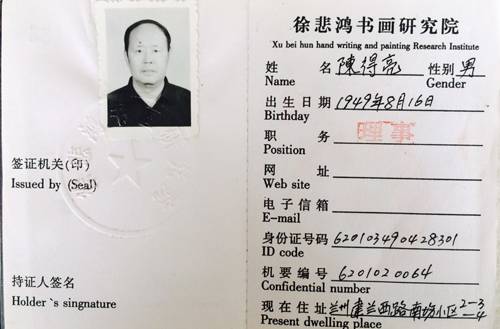 签证机关(印)
Issued by (Seal)
持证人签名
Holder `s singnature
徐悲鸿书画研究院
Xu bei hun hand writing and painting Research Institute
姓 名 陳得亮 性别 男
Name Gender
出生日期 1949年8月16日
Birthday
职 务
Position
网 址
Web site
电子信箱
E-mail
身份证号码 620103490428301
ID code
机要编号 6201020064
Confidential number
现在住址 兰州建兰西路南 小区
Present dwelling place